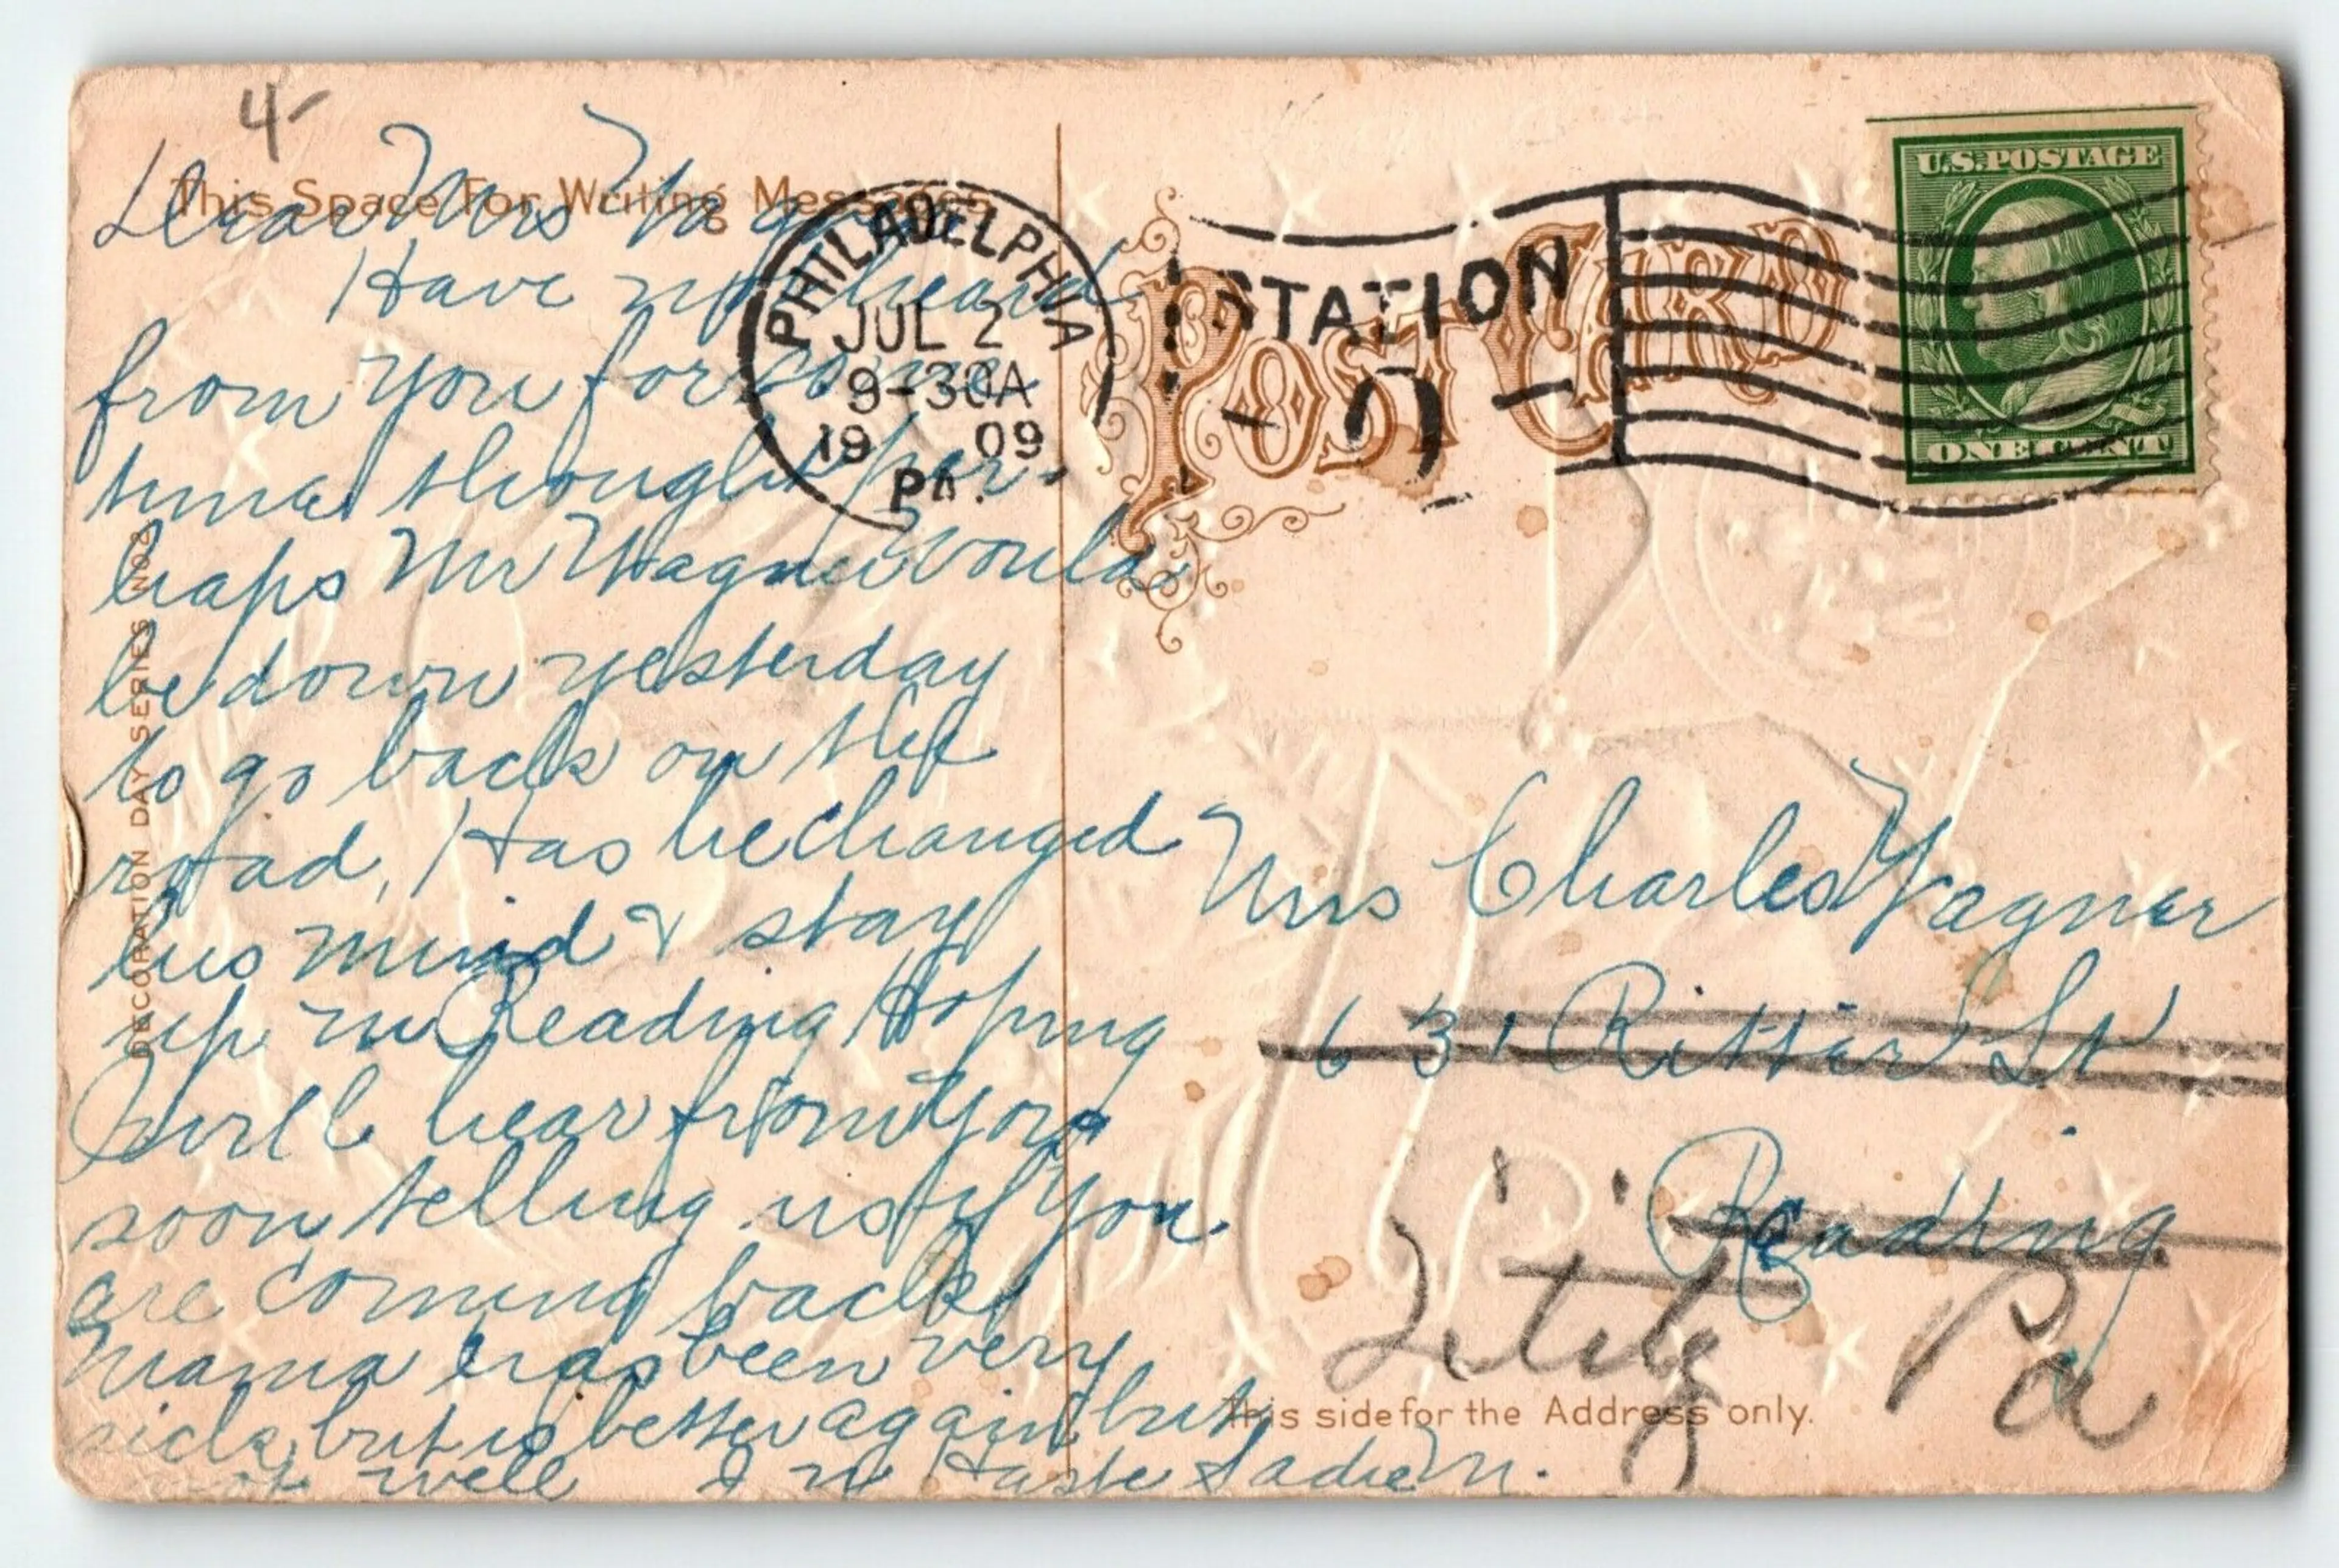 4-
This Space For Writing Messages
Dear Mrs Wagner
Have not heard
from you for some
time thought per-
haps Mr Wagner would
be down yesterday
to go back on the
road, Has he changed
his mind & stay
up in Reading Hoping
will hear from you
soon telling us if you
are coming back
Mama has been very
sick, but is better again but
not well In Haste Sadie M.
DECORATION DAY SERIES NO 2
PHILADELPHIA
JUL 2
9-30A
19 09
PA.
STATION
POST CARD
U.S. POSTAGE
ONE CENT
Mrs Charles Wagner
631 Ritter St
Reading
Lititz Pa
This side for the Address only.